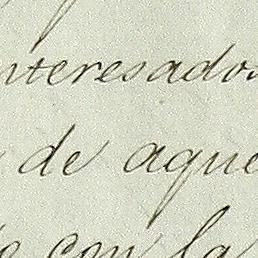 nteresados
de aque
con la